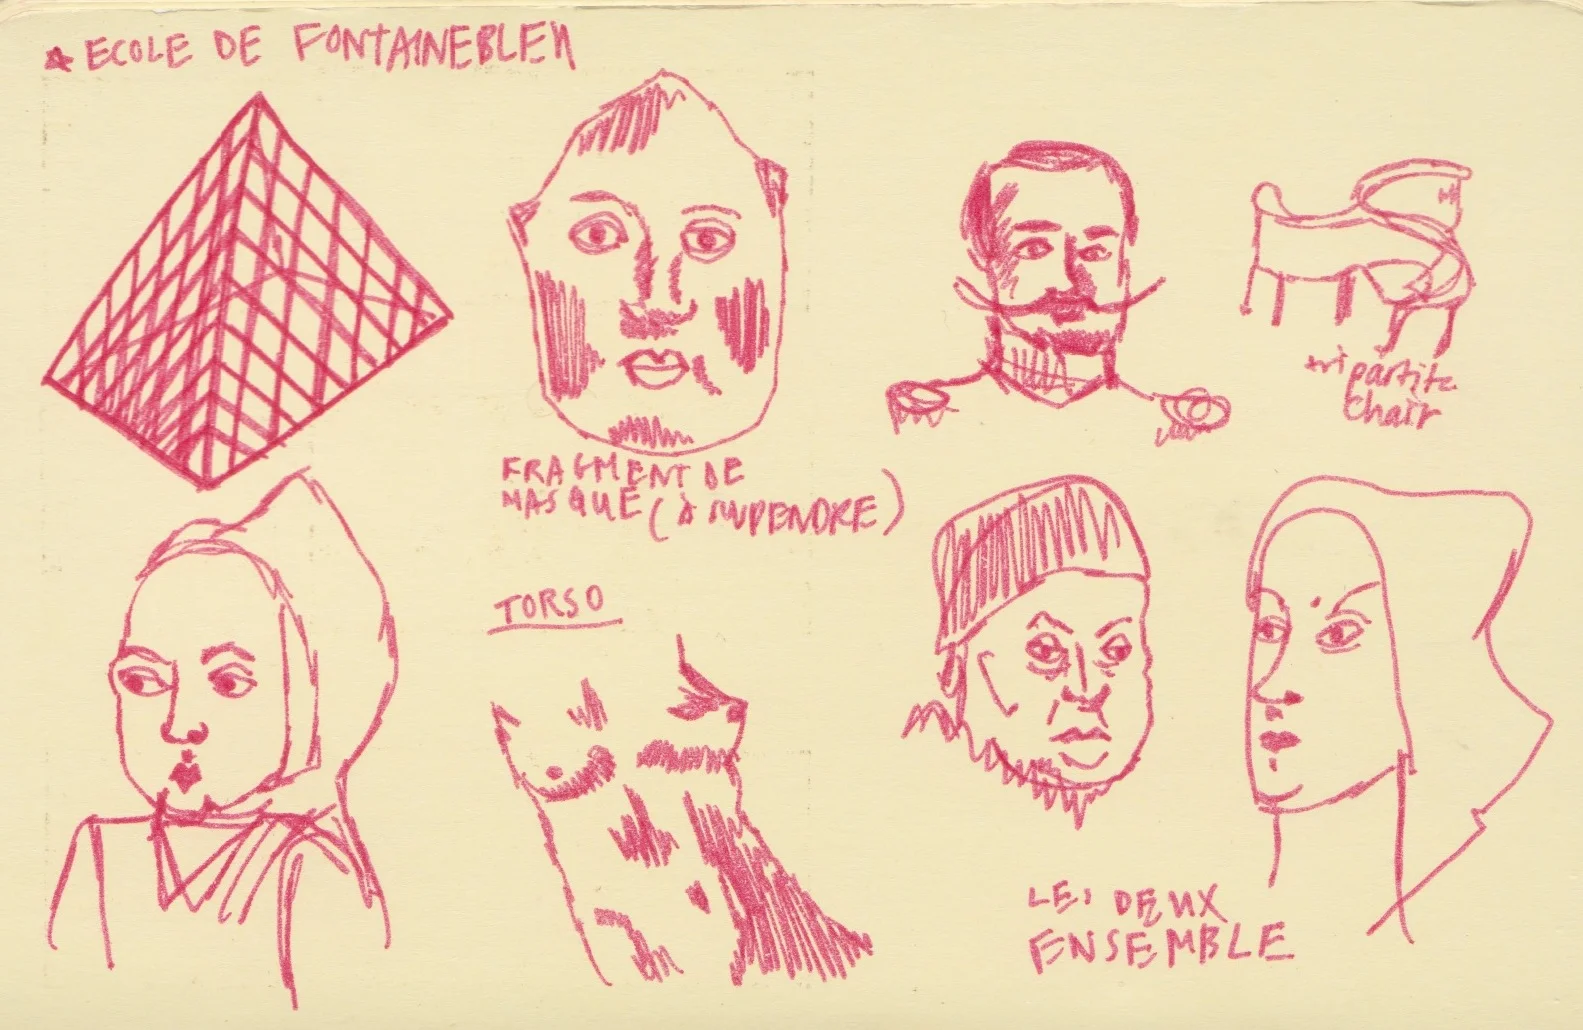 ECOLE DE FONTAINEBLEU
FRAGMENT DE
MASQUE (À SUSPENDRE)
tripartite
chair
TORSO
LES DEUX
ENSEMBLE